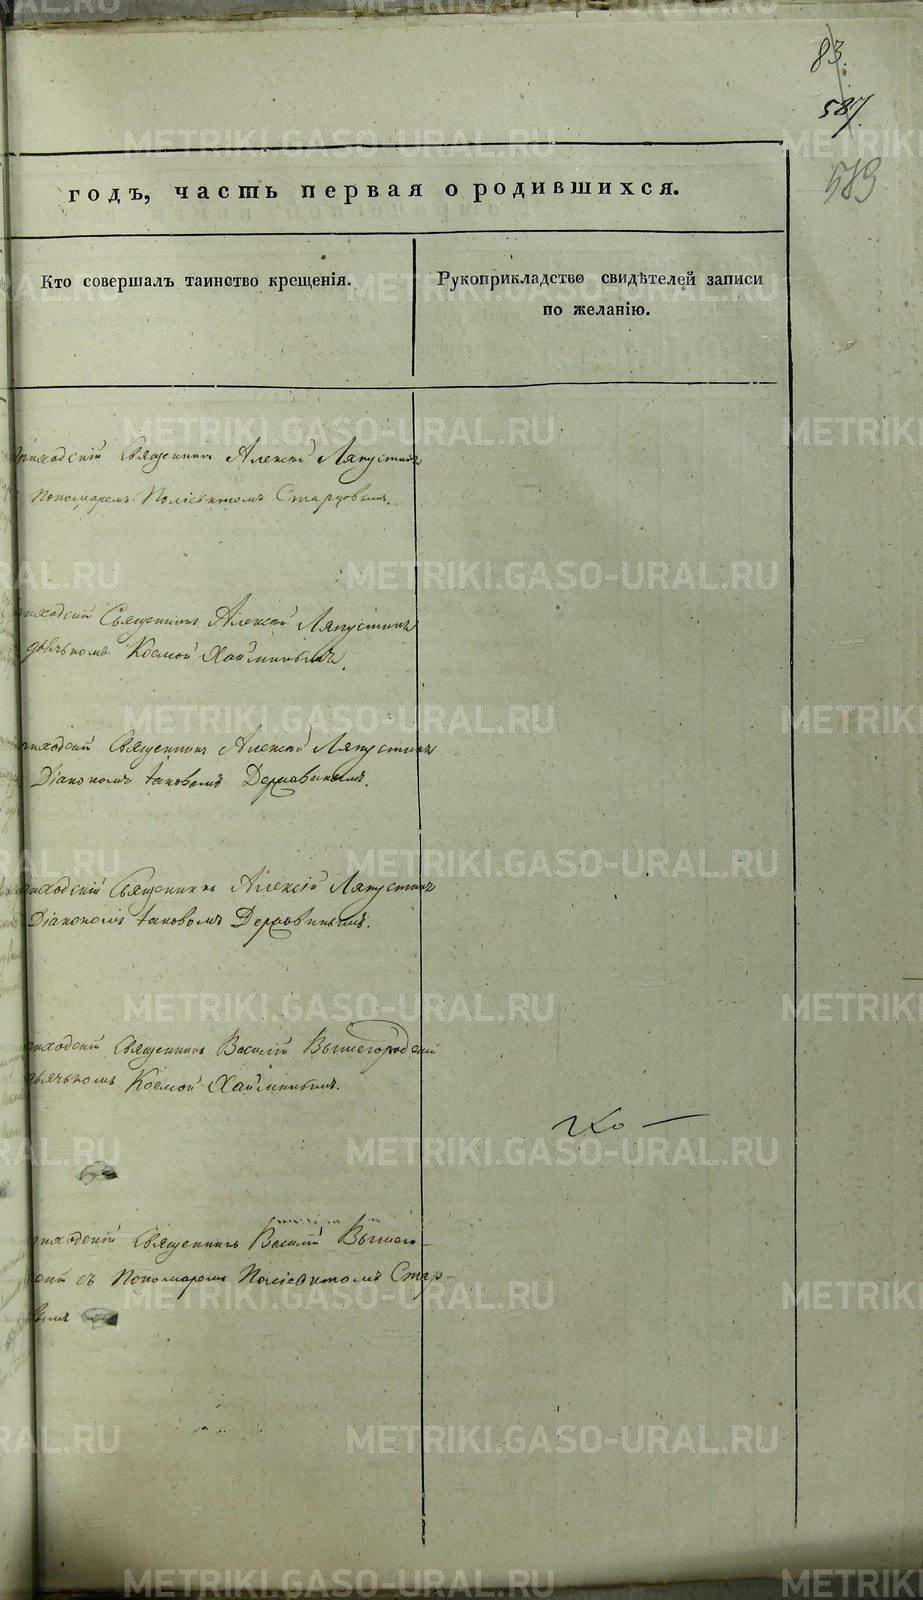 83.
587.
589
годъ, часть первая о родившихся.
Кто совершалъ таинство крещенія.
Рукоприкладство свидѣтелей записи
по желанію.
приходскій Священникъ Алексій Ляпустинъ
Пономаремъ Поліевктомъ Старцовымъ.
приходскій Священникъ Алексій Ляпустинъ
дьячькомъ Космой Хайминымъ.
приходскій Священникъ Алексій Ляпустинъ
Діакономъ Іаковомъ Державинымъ.
приходскій Священникъ Алексій Ляпустинъ
Діакономъ Іаковомъ Державинымъ.
приходскій Священникъ Василій Вышегородскій
дьячькомъ Космой Хайминымъ.
приходскій Священникъ Василій Вышего-
скій съ Пономаремъ Поліевктомъ Стар-
вымъ
METRIKI.GASO-URAL.RU